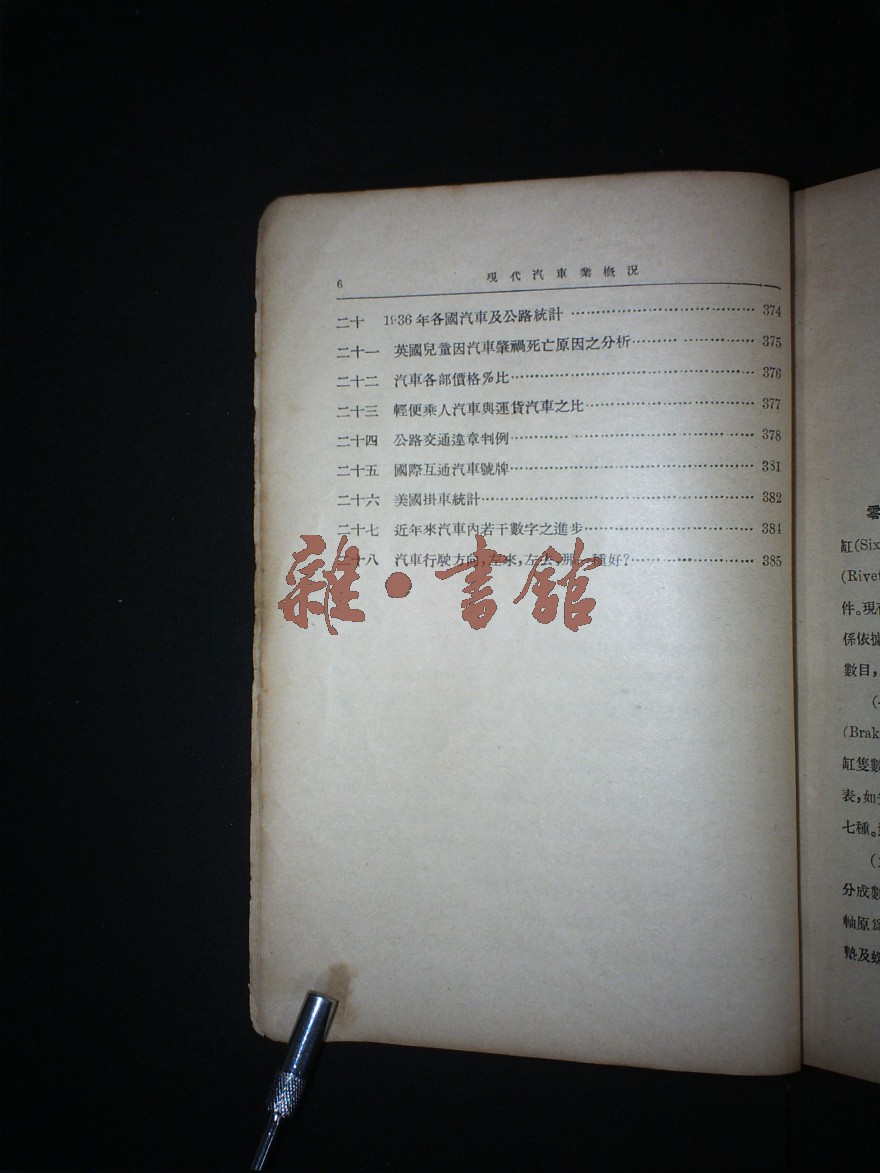 6 現代汽車業概況
二十 1936年各國汽車及公路統計 374
二十一 英國兒童因汽車肇禍死亡原因之分析 375
二十二 汽車各部價格%比 376
二十三 輕便乘人汽車與運貨汽車之比 377
二十四 公路交通違章判例 378
二十五 國際互通汽車號牌 381
二十六 美國掛車統計 382
二十七 近年來汽車內若干數字之進步 384
二十八 汽車行駛方向,左來,左去,那一種好? 385
雜·書館
零
缸(Six
(Rivet
件。現有
係依據
數目,
(Brak
缸隻數
表,如
七種。
分成數
軸原爲
墊及螺